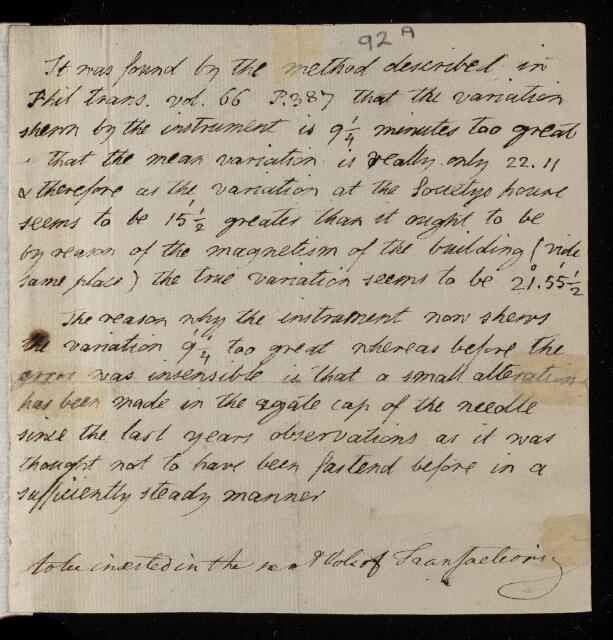 92 A
It was found by the method described in
Phil trans. vol. 66 P.387 that the variation
shewn by the instrument is 9 1/4 minutes too great
that the mean variation is really only 22.11
& therefore as the variation at the Societys house
seems to be 15 1/2 greater than it ought to be
by reason of the magnetism of the building (vide
same place) the true variation seems to be 21°.55 1/2
The reason why the instrument now shews
the variation 9 1/4 too great whereas before the
error was insensible is that a small alteration
has been made in the agate cap of the needle
since the last years observations as it was
thought not to have been fastend before in a
sufficiently steady manner
to be inserted in the next Vol. of Transactions